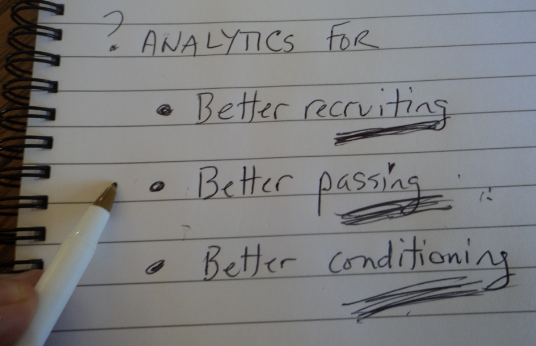 ? ANALYTICS FOR
• Better recruiting
• Better passing
• Better conditioning